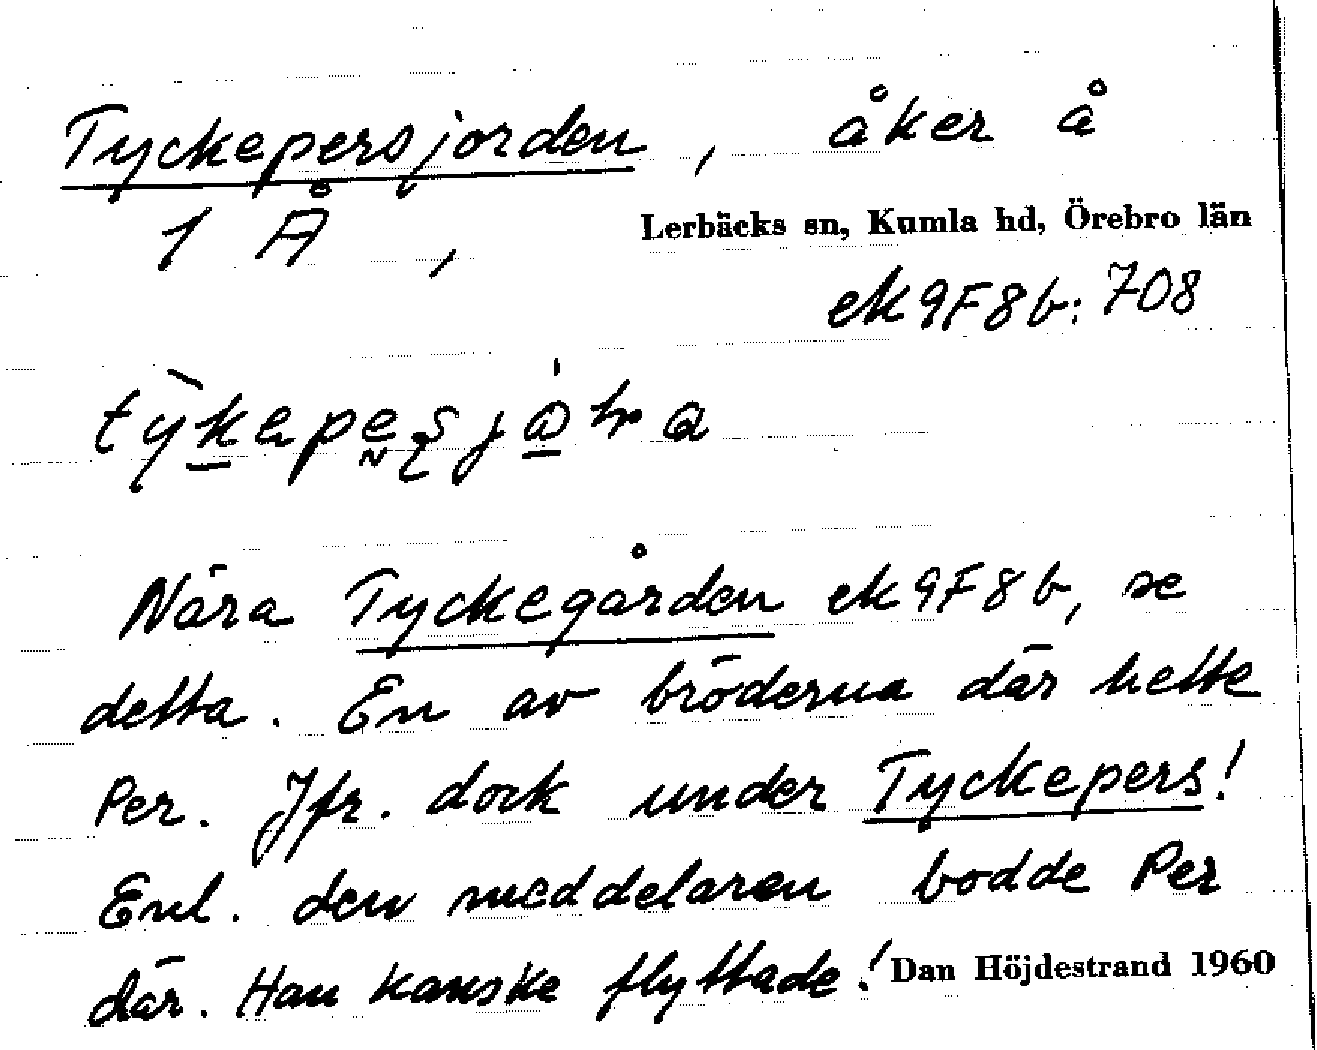 Tyckepersjorden, åker å
1 Å,
Lerbäcks sn, Kumla hd, Örebro län
ek9F8b:708
Nära Tyckegården ek9F8b, se
detta. En av bröderna där hette
Per. Jfr. dock under Tyckepers!
Enl. den meddelaren bodde Per
där. Han kanske flyttade!
Dan Höjdestrand 1960